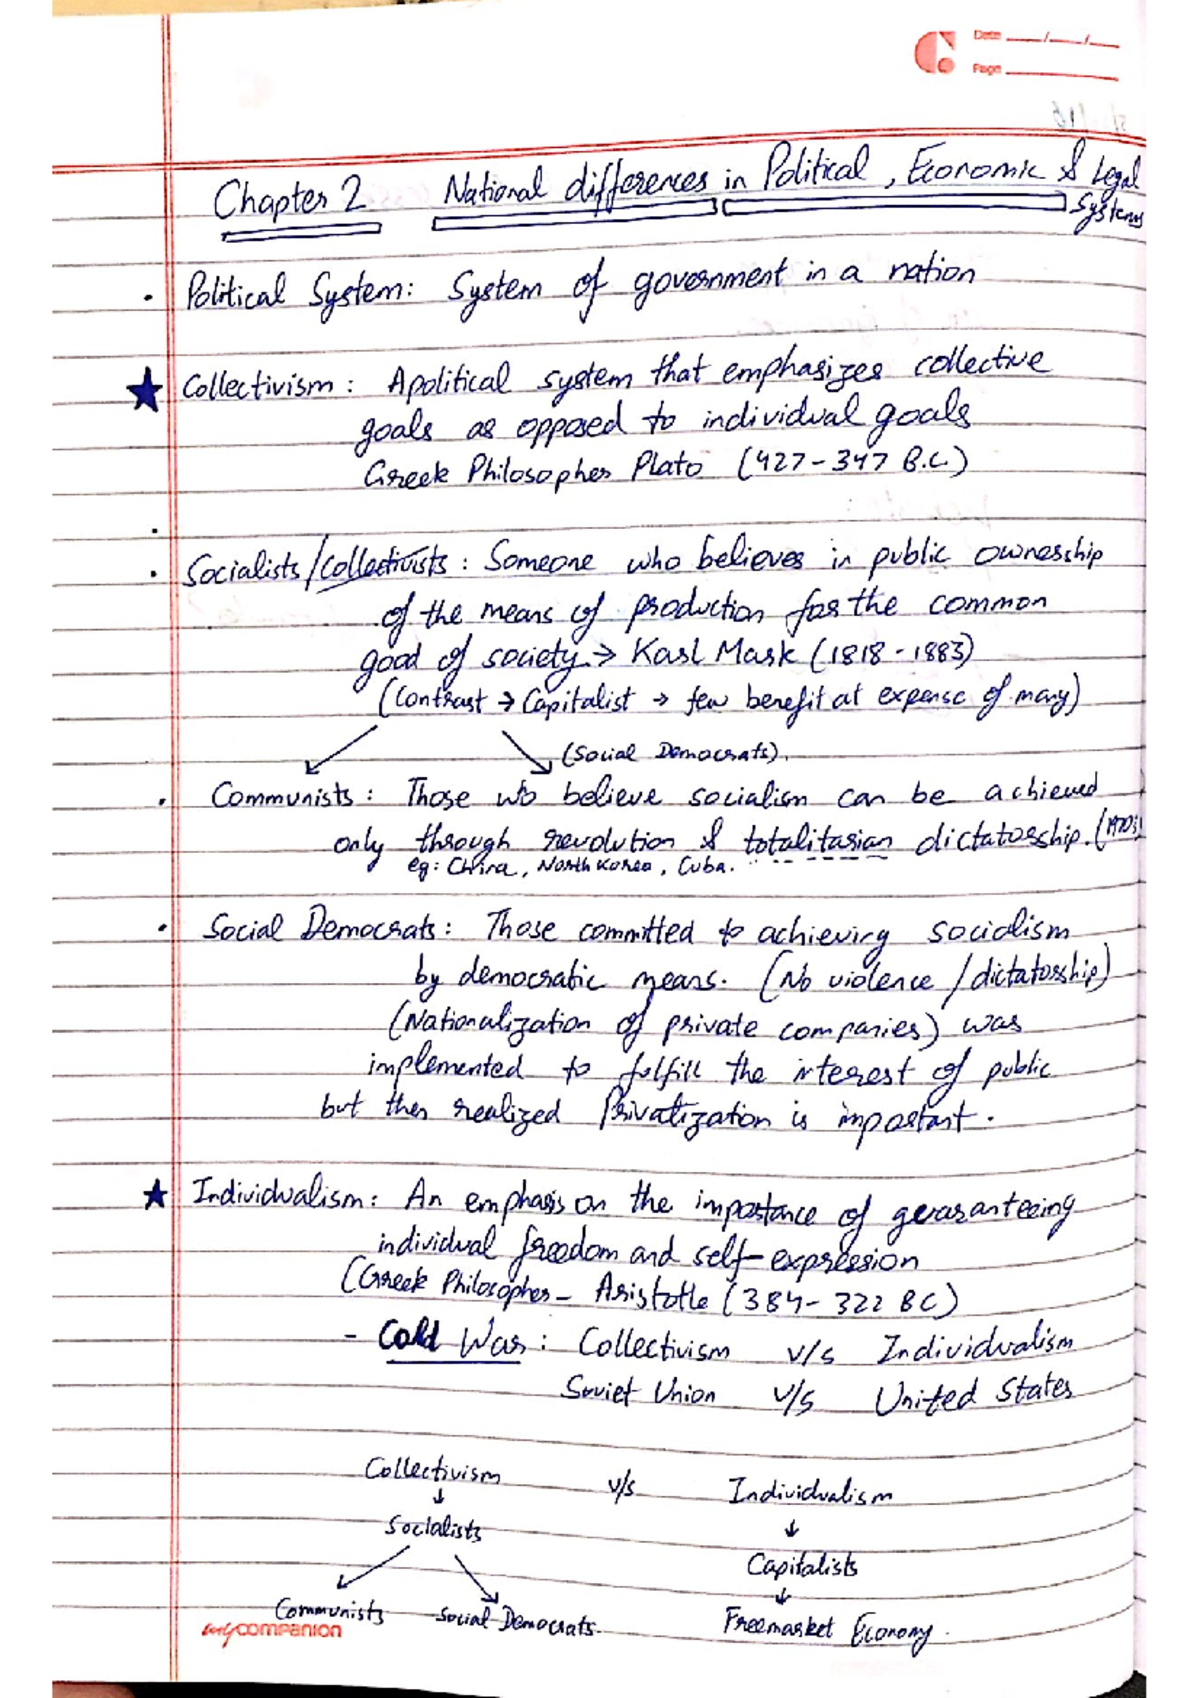 Date __/__/__
Page
Chapter 2 National differences in Political, Economic & Legal
Systems
• Political System: System of government in a nation
★ Collectivism: A political system that emphasizes collective
goals as opposed to individual goals
Greek Philosopher Plato (427-347 B.C.)
• Socialists/Collectivists: Someone who believes in public ownership
of the means of production for the common
good of society → Karl Mark (1818-1883)
(Contrast → Capitalist → few benefit at expense of many)
(Social Democrats).
• Communists: Those who believe socialism can be achieved
only through revolution & totalitarian dictatorship. (1970s)
eg: China, North Korea, Cuba.
• Social Democrats: Those committed to achieving socialism
by democratic means. (No violence / dictatorship)
(Nationalization of private companies) was
implemented to fulfill the interest of public
but then realized Privatization is important.
★ Individualism: An emphasis on the importance of guaranteeing
individual freedom and self-expression
(Greek Philosopher - Aristotle (384-322 BC)
- Cold War: Collectivism v/s Individualism
Soviet Union v/s United States
Collectivism v/s Individualism
↓ ↓
Socialists Capitalists
↙ ↘ ↓
Communists Social Democrats. Freemarket Economy.
mycompanion